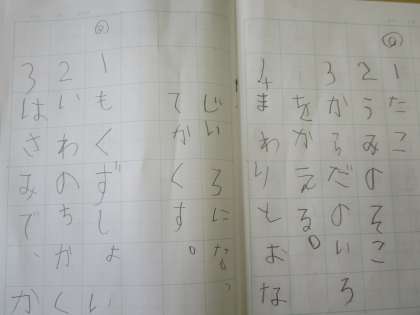 1 たこ
2 うみのそこ
3 からだのいろ
をかえる。
4 まわりとおな
じいろになっ
てかくす。
1 もくずしょい
2 いわのちかく
3 はさみで、か